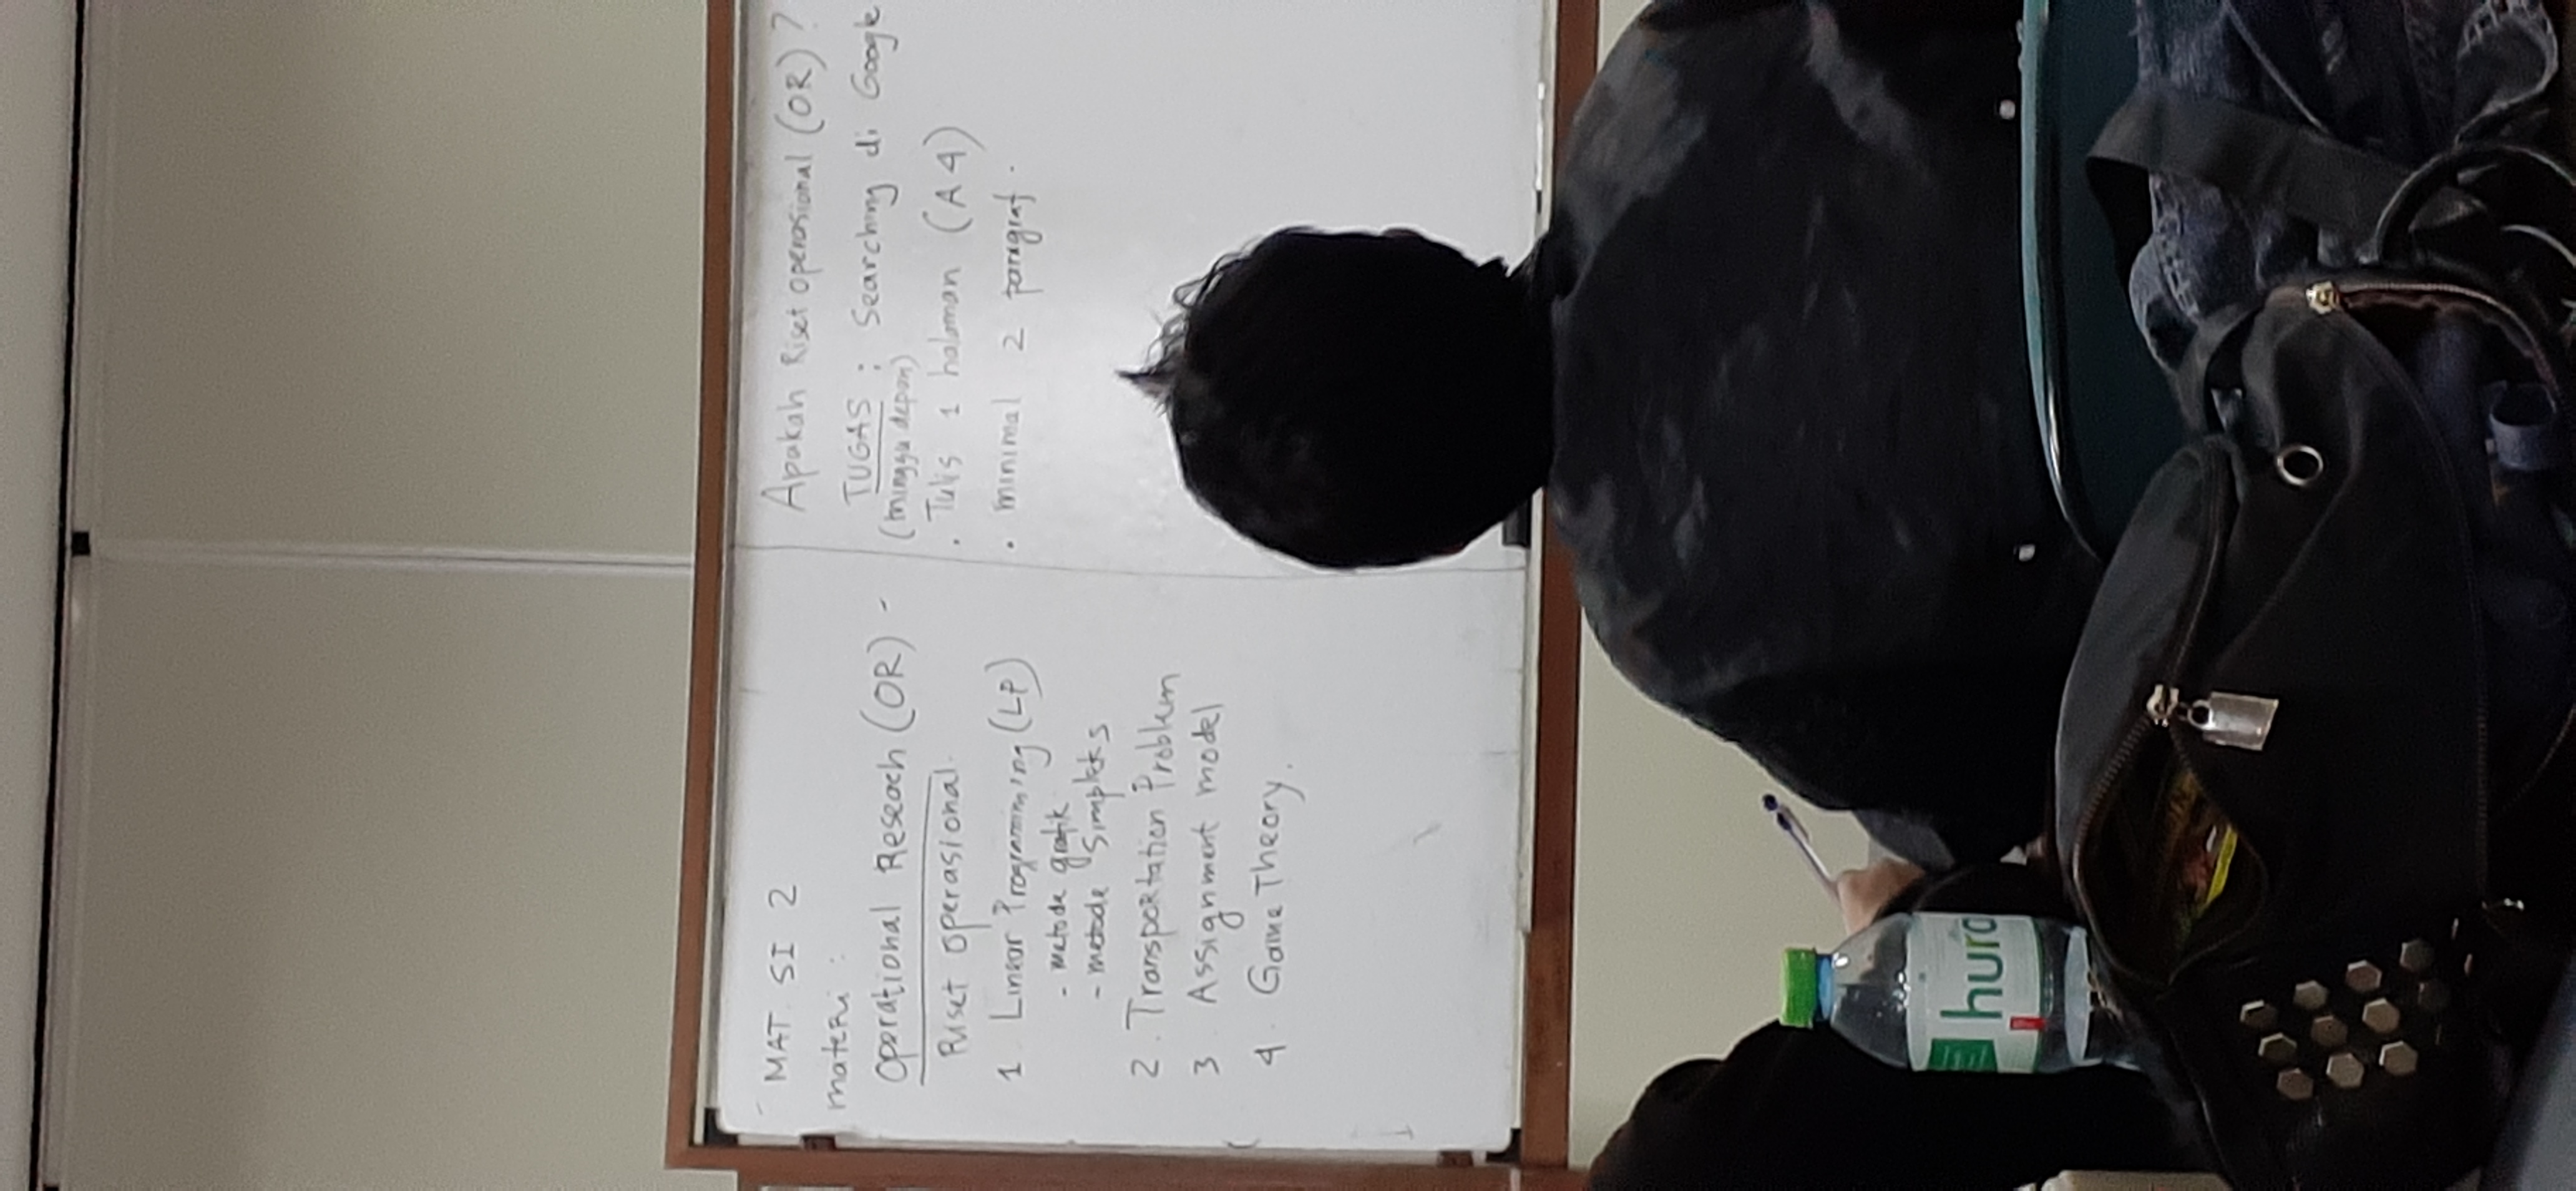 MAT. SI 2
materi :
Operational Reseach (OR) -
Riset operasional.
1 Linear Programming (LP)
- metode grafik
- metode Simpleks
2. Transportation Problem
3 Assignment model
4. Game Theory.
Apakah Riset operasional (OR) ?
TUGAS : Searching di Google
(minggu depan)
. Tulis 1 halaman (A4)
. minimal 2 paragraf.
hura